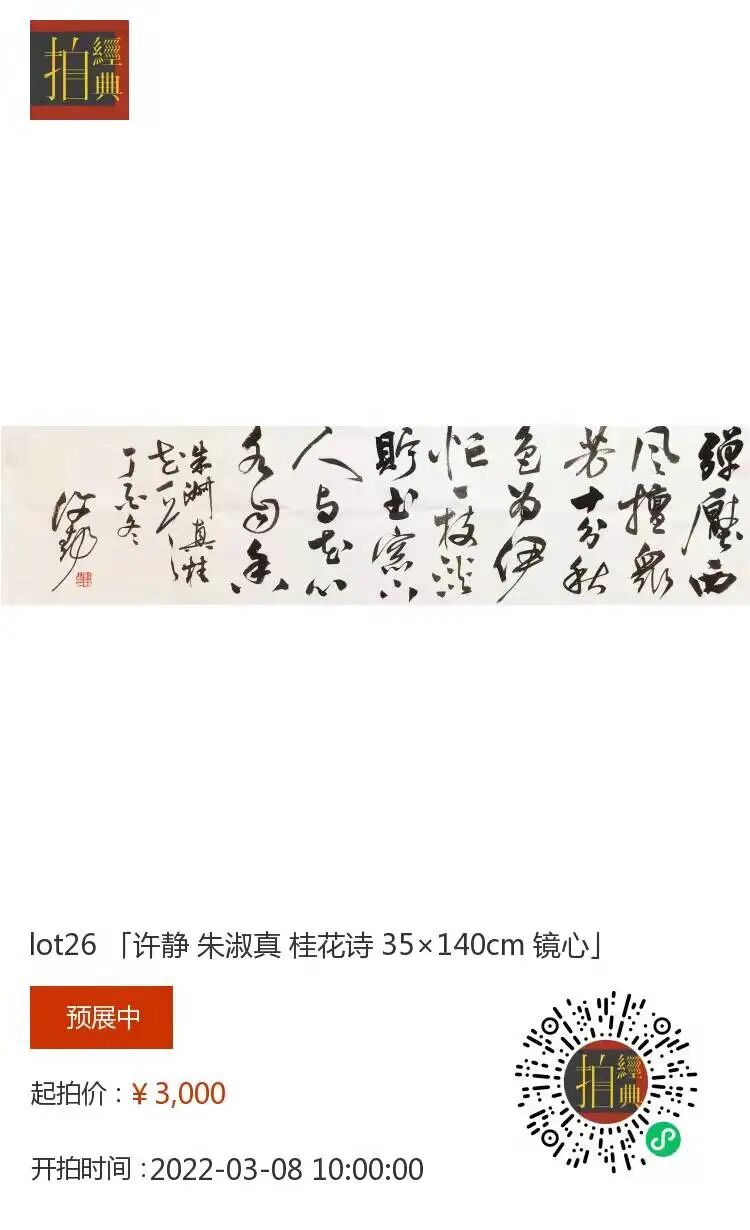 拍
經典
彈壓西
风擅眾
芳十分秋
色为伊
忙一枝淡
貯书窗下
人与花心
各自香
朱淑真桂
花一
丁酉冬
许静
lot26 「许静 朱淑真 桂花诗 35×140cm 镜心」
预展中
起拍价：¥ 3,000
开拍时间：2022-03-08 10:00:00
拍
經典